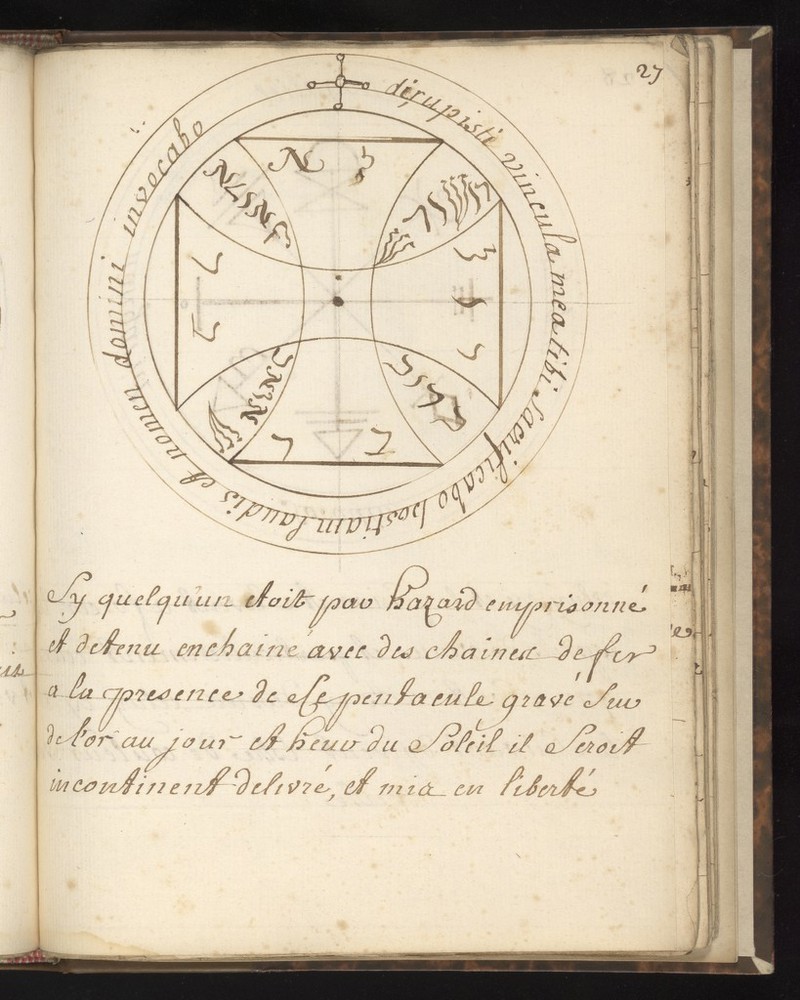 27
dirupisti vincula mea tibi Sacrificabo hostiam laudis et nomen domini invocabo
Sy quelqu'un etoit par hazard emprisonné
et detenu enchainé avec des chaines de fer
a la presence de Ce pentacule gravé Sur
de l'or au jour et heur du Soleil il Seroit
incontinent delivré, et mis en liberté